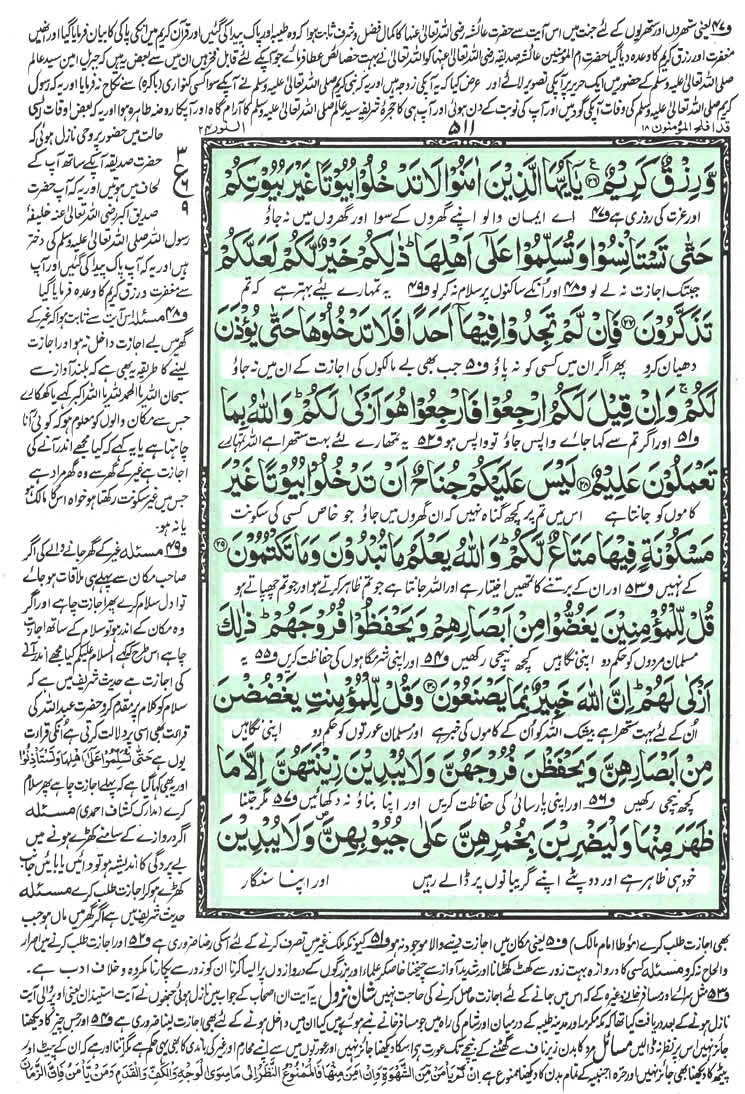 و۴۷ یعنی ستھروں اور ستھریوں کے لئے جنت میں اس آیت سے حضرت عائشہ رضی اللہ تعالیٰ عنہا کا کمال فضل و شرف ثابت ہوا کہ وہ طیبہ اور پاک پیدا کی گئیں اور قرآن کریم میں انکی پاکی کا بیان فرمایا گیا اور انھیں
مغفرت اور رزق کریم کا وعدہ دیا گیا حضرت ام المؤمنین عائشہ صدیقہ رضی اللہ تعالیٰ عنہا کو اللہ تعالیٰ نے بہت خصائص عطا فرمائے جو آپکے لئے قابل فخر ہیں ان میں سے بعض یہ ہیں کہ جبریل امین سید عالم
صلی اللہ تعالیٰ علیہ وسلم کے حضور میں ایک حریر پر آپکی تصویر لائے اور عرض کیا کہ یہ آپکی زوجہ ہیں اور یہ کہ نبی کریم صلی اللہ تعالیٰ علیہ وسلم نے آپکے سوا کسی کنواری (باکرہ) سے نکاح نہ فرمایا اور یہ کہ رسول
کریم صلی اللہ تعالیٰ علیہ وسلم کی وفات آپکی گود میں اور آپ کی نوبت کے دن ہوئی اور آپ ہی کا حجرۂ شریفہ سید عالم صلی اللہ تعالیٰ علیہ وسلم کا آرام گاہ اور آپکا روضہ طاہرہ ہوا اور یہ کہ بعض اوقات ایسی
قد افلح المؤمنون ۱۸
۵۱۱
النور ۲۴
وَّرِزْقٌ كَرِيْمٌ ۲۶ يٰۤاَيُّهَا الَّذِيْنَ اٰمَنُوْا لَا تَدْخُلُوْا بُيُوْتًا غَيْرَ بُيُوْتِكُمْ
اور عزت کی روزی ہے و۴۷ اے ایمان والو اپنے گھروں کے سوا اور گھروں میں نہ جاؤ
حَتّٰى تَسْتَاْنِسُوْا وَتُسَلِّمُوْا عَلٰۤى اَهْلِهَا ؕ ذٰلِكُمْ خَيْرٌ لَّكُمْ لَعَلَّكُمْ
جبتک اجازت نہ لے لو و۴۸ اور انکے ساکنوں پر سلام نہ کر لو و۴۹ یہ تمہارے لئے بہتر ہے کہ تم
تَذَكَّرُوْنَ ۲۷ فَاِنْ لَّمْ تَجِدُوْا فِيْهَاۤ اَحَدًا فَلَا تَدْخُلُوْهَا حَتّٰى يُؤْذَنَ
دھیان کرو پھر اگر ان میں کسی کو نہ پاؤ و۵۰ جب بھی بے مالکوں کی اجازت کے ان میں نہ جاؤ
لَكُمْ ۚ وَاِنْ قِيْلَ لَكُمُ ارْجِعُوْا فَارْجِعُوْا هُوَ اَزْكٰى لَكُمْ ؕ وَاللّٰهُ بِمَا
و۵۱ اور اگر تم سے کہا جائے واپس جاؤ تو واپس ہو و۵۲ یہ تمھارے لئے بہت ستھرا ہے اللہ تمہارے
تَعْمَلُوْنَ عَلِيْمٌ ۲۸ لَيْسَ عَلَيْكُمْ جُنَاحٌ اَنْ تَدْخُلُوْا بُيُوْتًا غَيْرَ
کاموں کو جانتا ہے اس میں تم پر کچھ گناہ نہیں کہ ان گھروں میں جاؤ جو خاص کسی کی سکونت
مَسْكُوْنَةٍ فِيْهَا مَتَاعٌ لَّكُمْ ؕ وَاللّٰهُ يَعْلَمُ مَا تُبْدُوْنَ وَمَا تَكْتُمُوْنَ ۲۹
کے نہیں و۵۳ اور ان کے برتنے کا تمھیں اختیار ہے اور اللہ جانتا ہے جو تم ظاہر کرتے ہو اور جو تم چھپاتے ہو
قُلْ لِّلْمُؤْمِنِيْنَ يَغُضُّوْا مِنْ اَبْصَارِهِمْ وَيَحْفَظُوْا فُرُوْجَهُمْ ؕ ذٰلِكَ
مسلمان مردوں کو حکم دو اپنی نگاہیں کچھ نیچی رکھیں و۵۴ اور اپنی شرمگاہوں کی حفاظت کریں و۵۵ یہ
اَزْكٰى لَهُمْ ؕ اِنَّ اللّٰهَ خَبِيْرٌۢ بِمَا يَصْنَعُوْنَ ۳۰ وَقُلْ لِّلْمُؤْمِنٰتِ يَغْضُضْنَ
اُن کے لئے بہت ستھرا ہے بیشک اللہ کو اُن کے کاموں کی خبر ہے اور مسلمان عورتوں کو حکم دو اپنی نگاہیں
مِنْ اَبْصَارِهِنَّ وَيَحْفَظْنَ فُرُوْجَهُنَّ وَلَا يُبْدِيْنَ زِيْنَتَهُنَّ اِلَّا مَا
کچھ نیچی رکھیں و۵۶ اور اپنی پارسائی کی حفاظت کریں اور اپنا بناؤ نہ دکھائیں و۵۷ مگر جتنا
ظَهَرَ مِنْهَا وَلْيَضْرِبْنَ بِخُمُرِهِنَّ عَلٰى جُيُوْبِهِنَّ ۪ وَلَا يُبْدِيْنَ
خود ہی ظاہر ہے اور دوپٹے اپنے گریبانوں پر ڈالے رہیں اور اپنا سنگار
۳
ع
۶
۹
حالت میں حضور پر وحی نازل ہوئی کہ
حضرت صدیقہ آپکے ساتھ آپ کے
لحاف میں ہوتیں اور یہ کہ آپ حضرت
صدیق اکبر رضی اللہ تعالیٰ عنہ خلیفۂ
رسول اللہ صلی اللہ تعالیٰ علیہ وسلم کی دختر
ہیں اور یہ کہ آپ پاک پیدا کی گئیں اور آپ
سے مغفرت و رزق کریم کا وعدہ فرمایا گیا
و۴۸ مسئلہ اس آیت سے ثابت ہوا کہ غیر کے
گھر میں بے اجازت داخل نہ ہو اور اجازت
لینے کا طریقہ یہ بھی ہے کہ بلند آواز سے
سبحان اللہ یا الحمد للہ یا اللہ اکبر کہے یا کھکارے
جس سے مکان والوں کو معلوم ہو کہ کوئی آنا
چاہتا ہے یا یہ کہے کہ کیا مجھے اندر آنے کی
اجازت ہے غیر کے گھر سے وہ گھر مراد ہے
جس میں غیر سکونت رکھتا ہو خواہ اس کا مالک ہو
یا نہ ہو۔
و۴۹ مسئلہ غیر کے گھر جانے والے کی اگر
صاحب مکان سے پہلے ہی ملاقات ہو جائے
تو اول سلام کرے پھر اجازت چاہے اور اگر
وہ مکان کے اندر ہو تو سلام کے ساتھ اجازت
چاہے اس طرح کہ کہے السلام علیکم کیا مجھے اندر آنے
کی اجازت ہے حدیث شریف میں ہے کہ
سلام کو کلام پر مقدم کرو حضرت عبداللہ کی
قراءت بھی اسی پر دلالت کرتی ہے انکی قراءت
یوں ہے حَتّٰى تُسَلِّمُوْا عَلٰۤى اَهْلِهَا وَتَسْتَاْذِنُوْا
اور یہ بھی کہا گیا ہے کہ پہلے اجازت چاہے پھر سلام
کرے (مدارک کشاف احمدی) مسئلہ
اگر دروازے کے سامنے کھڑے ہونے میں
بے پردگی کا اندیشہ ہو تو داہنی یا بائیں جانب
کھڑے ہو کر اجازت طلب کرے مسئلہ
حدیث شریف میں ہے اگر گھر میں ماں ہو جب
بھی اجازت طلب کرے (مؤطا امام مالک) و۵۰ یعنی مکان میں اجازت دینے والا موجود نہ ہو و۵۱ کیونکہ ملک غیر میں تصرف کرنے کے لئے اسکی رضا ضروری ہے و۵۲ اور اجازت طلب کرنے میں اصرار
والحاح نہ کرو مسئلہ کسی کا دروازہ بہت زور سے کھٹ کھٹانا اور شدید آواز سے چیخنا خاصکر علماء اور بزرگوں کے دروازوں پر ایسا کرنا ان کو زور سے پکارنا مکروہ و خلاف ادب ہے۔
و۵۳ مثل سرائے اور مسافر خانے وغیرہ کے کہ اس میں جانے کے لئے اجازت حاصل کرنے کی حاجت نہیں شان نزول یہ آیت ان اصحاب کے جواب میں نازل ہوئی جنھوں نے آیت استیذان یعنی اوپر والی آیت
نازل ہونے کے بعد دریافت کیا تھا کہ مکہ مکرمہ اور مدینہ طیبہ کے درمیان اور شام کی راہ میں جو مسافر خانے بنے ہوئے ہیں کیا ان میں داخل ہونے کے لئے بھی اجازت لینا ضروری ہے و۵۴ اور جس چیز کا دیکھنا
جائز نہیں اس پر نظر نہ ڈالیں مسائل مرد کا بدن زیر ناف سے گھٹنے کے نیچے تک عورت ہے اسکا دیکھنا جائز نہیں اور عورتوں میں سے اپنے محارم اور غیر کی باندی کا بھی یہی حکم ہے مگر اتنا اور ہے کہ ان کے پیٹ اور
پیٹھ کا دیکھنا بھی جائز نہیں اور حرہ اجنبیہ کے تمام بدن کا دیکھنا ممنوع ہے اِنْ لَّمْ يَأْمَنْ مِنَ الشَّهْوَةِ وَاِنْ اَمِنَ مِنْهَا فَالْمَمْنُوْعُ النَّظَرُ اِلٰى مَاسِوَى الْوَجْهِ وَالْكَفِّ وَالْقَدَمِ وَمَنْ يَأْمَنُ فَاِنَّ الزَّمَانَ